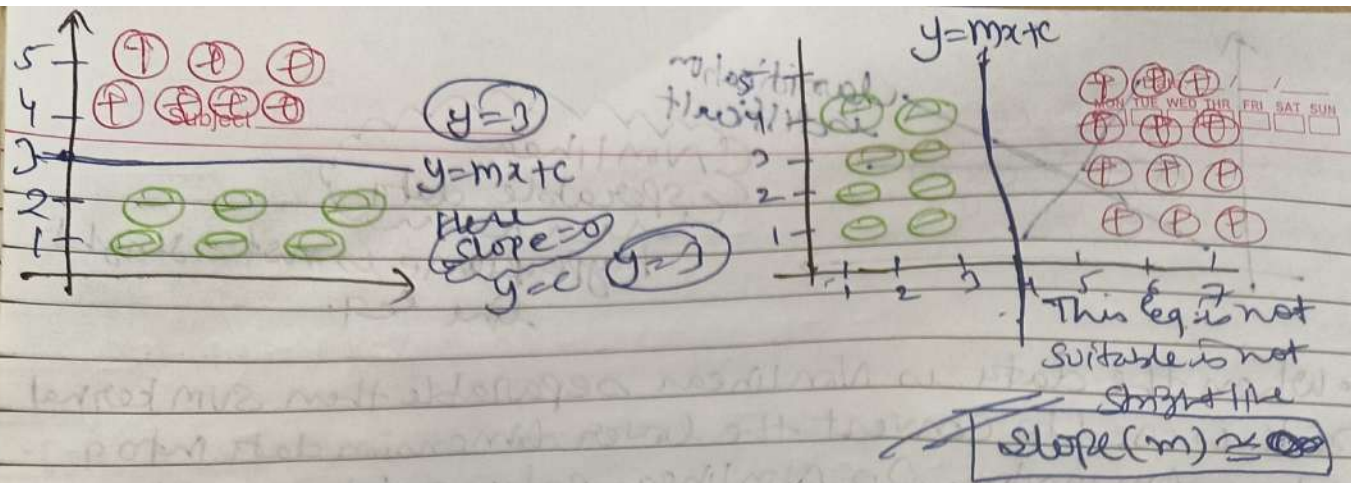 5
4
3
2
1
Subject
y=3
y=mx+c
Here
slope=0
y=c
y=3
y=mx+c
MON TUE WED THR FRI SAT SUN
3
2
1
1 2 3 4 5 6 7
This eq is not
suitable is not
slope(m) ≈ ∞